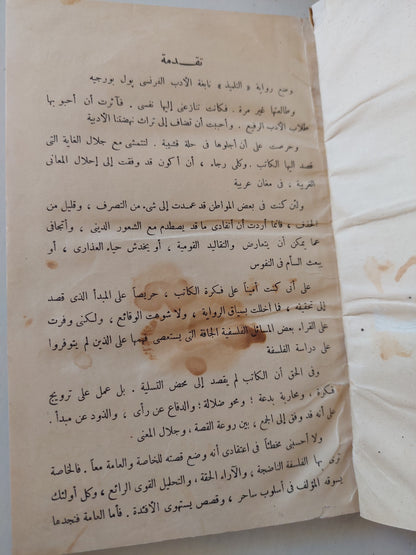 تقدمة
وضع رواية « التلميذ » نابغة الأدب الفرنسى پول بورجيه
وطالعتها غير مرة . فكانت تنازعنى إليها نفسى . فآثرت أن أحبو بها
طلاب الأدب الرفيع . وأحببت أن تضاف إلى تراث نهضتنا الأدبية
وحرصت على أن أجلوها فى حلة قشيبة . لتتمشى مع جلال الغاية التى
قصد اليها الكاتب . وكلى رجاء ، أن أكون قد وفقت إلى إحلال المعانى
الغربية ، فى مغان عربية
ولئن كنت فى بعض المواطن قد عمدت إلى شىء من التصرف ، وقليل من
الحذف ، فانما أردت أن أتفادى ما قد يصطدم مع الشعور الدينى ، وأتجافى
عما يمكن أن يتعارض والتقاليد القومية ، أو يخدش حياء العذارى ، أو
يبعث السأم فى النفوس
على أنى كنت أميناً على فكرة الكاتب ، حريصاً على المبدأ الذى قصد
إلى تحقيقه ، فما أخللت بسياق الرواية ، ولا شوهت الوقائع ، ولكنى وفرت
على القراء بعض المسائل الفلسفية الجافة التى يستعصى فهمها على الذين لم يتوفروا
على دراسة الفلسفة
وفى الحق أن الكاتب لم يقصد إلى محض التسلية . بل عمل على ترويج
فكرة ، ومحاربة بدعة ؛ ومحو ضلالة ؛ والدفاع عن رأى ، والذود عن مبدأ .
على أنه قد وفق إلى الجمع ، بين روعة القصة ، وجلال المعنى .
ولا أحسبنى مخطئاً فى اعتقادى أنه وضع قصته للخاصة والعامة معاً . فالخاصة
ترى بها الفلسفة الناضجة ، والآراء الحقة ، والتحليل القوى الرائع ، وكل أولئك
يسوقه المؤلف فى أسلوب ساحر ، وقصص يستهوى الأفئدة . فأما العامة فتجدها